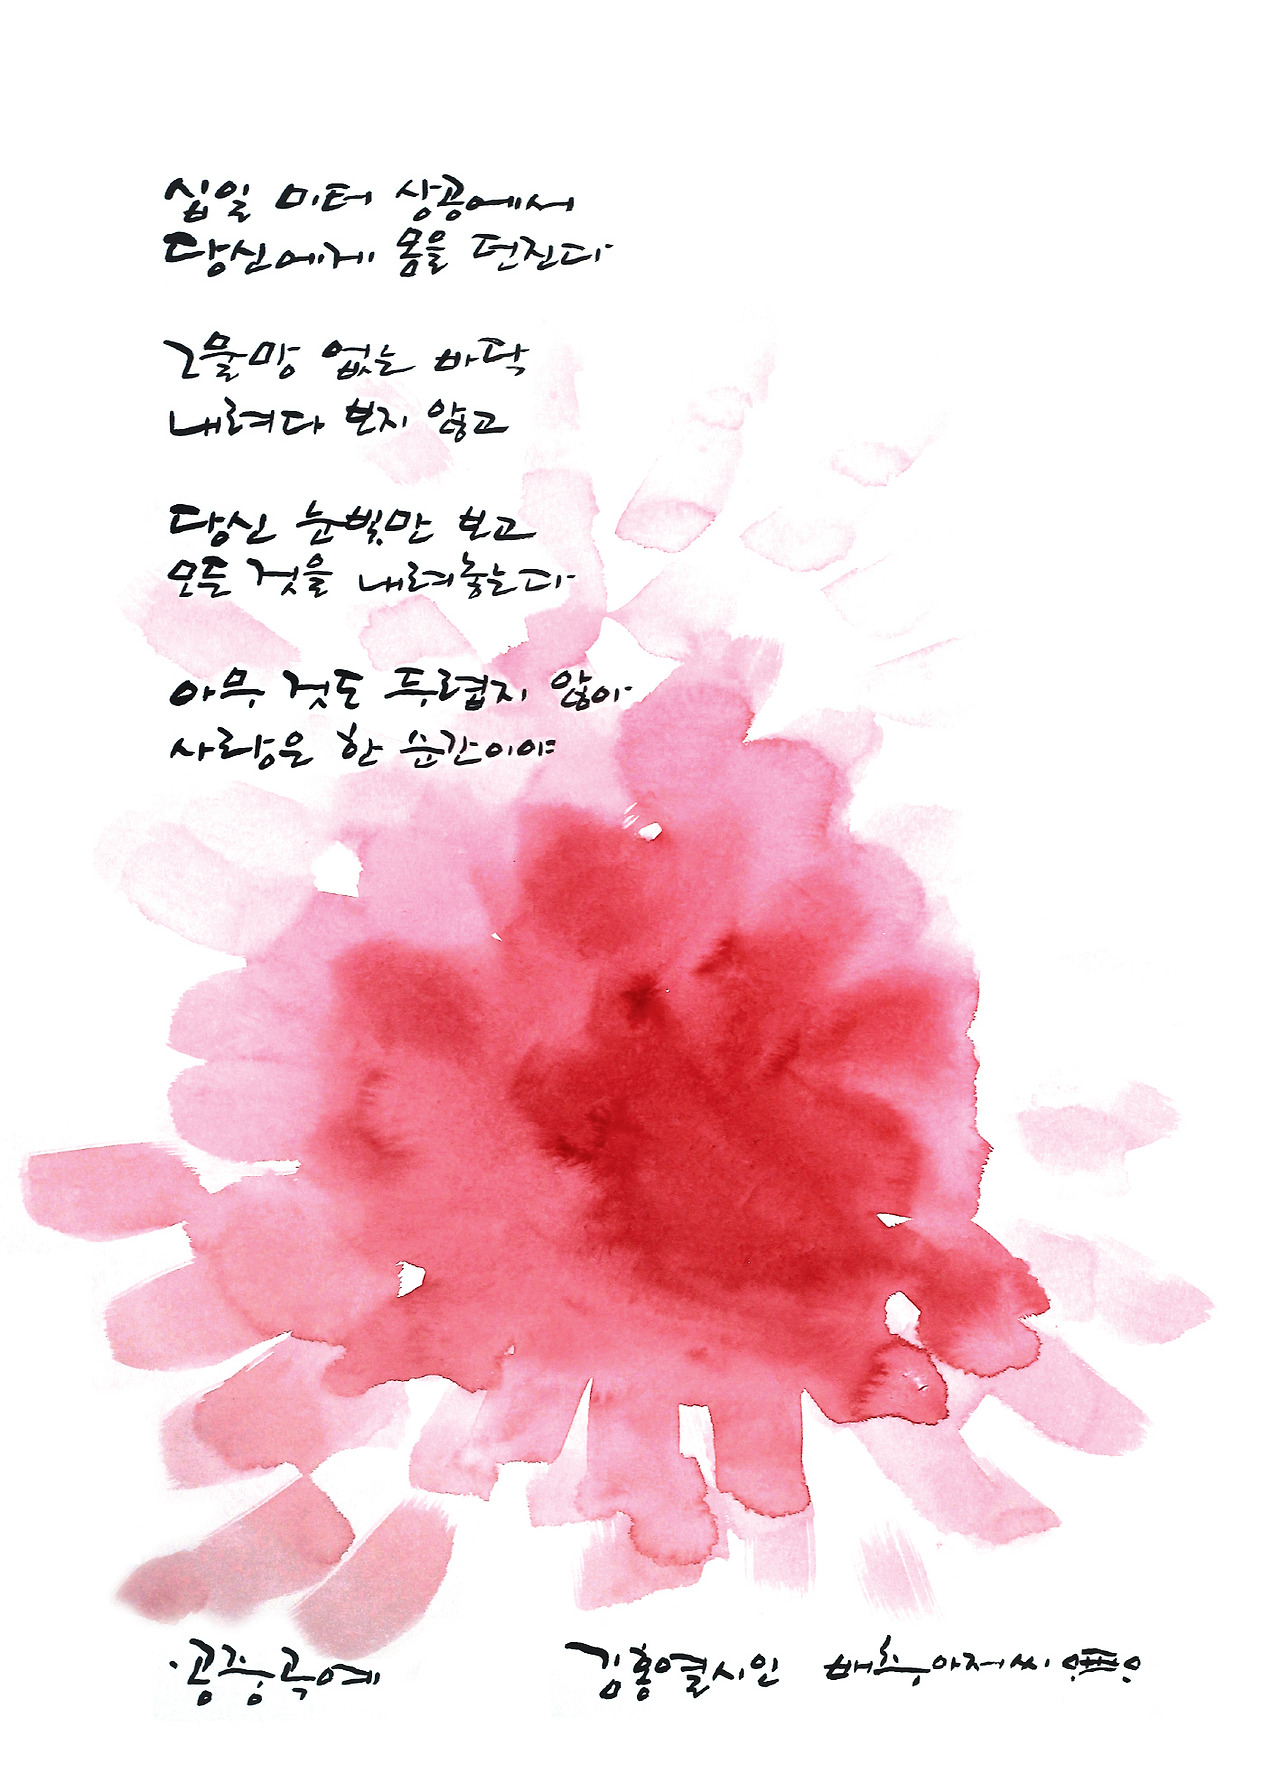 십일 미터 상공에서
당신에게 몸을 던진다
그물망 없는 바닥
내려다 보지 않고
당신 눈빛만 보고
모든 것을 내려놓는다
아무 것도 두렵지 않아
사랑은 한 순간이야
·공중곡예
김홍열시인 배추아저씨